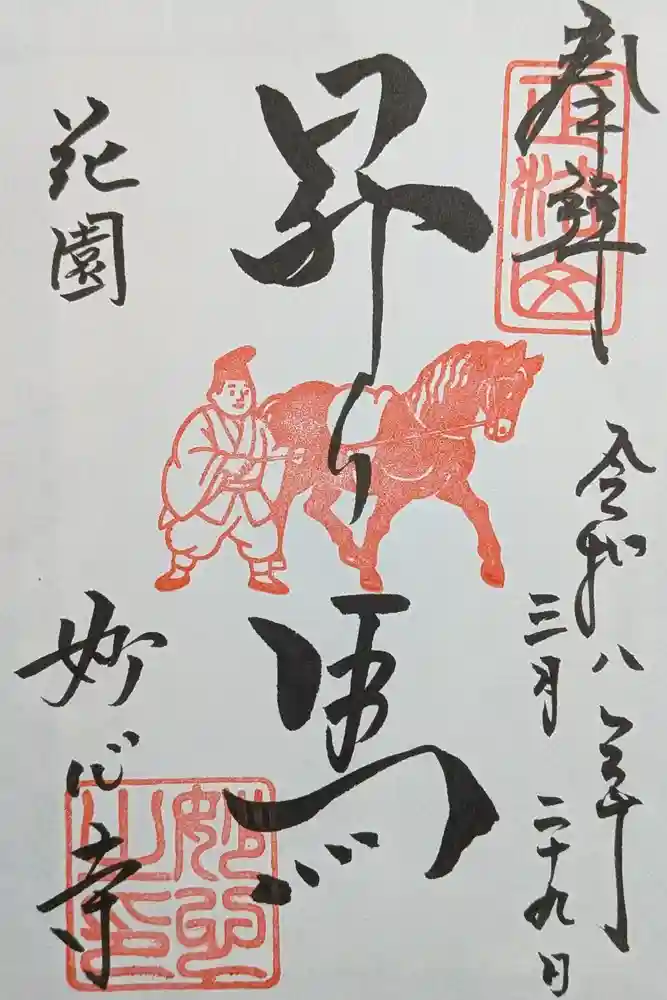 奉拝
正法山
令和八年
三月二十九日
昇り馬
花園
妙心寺
妙心之印